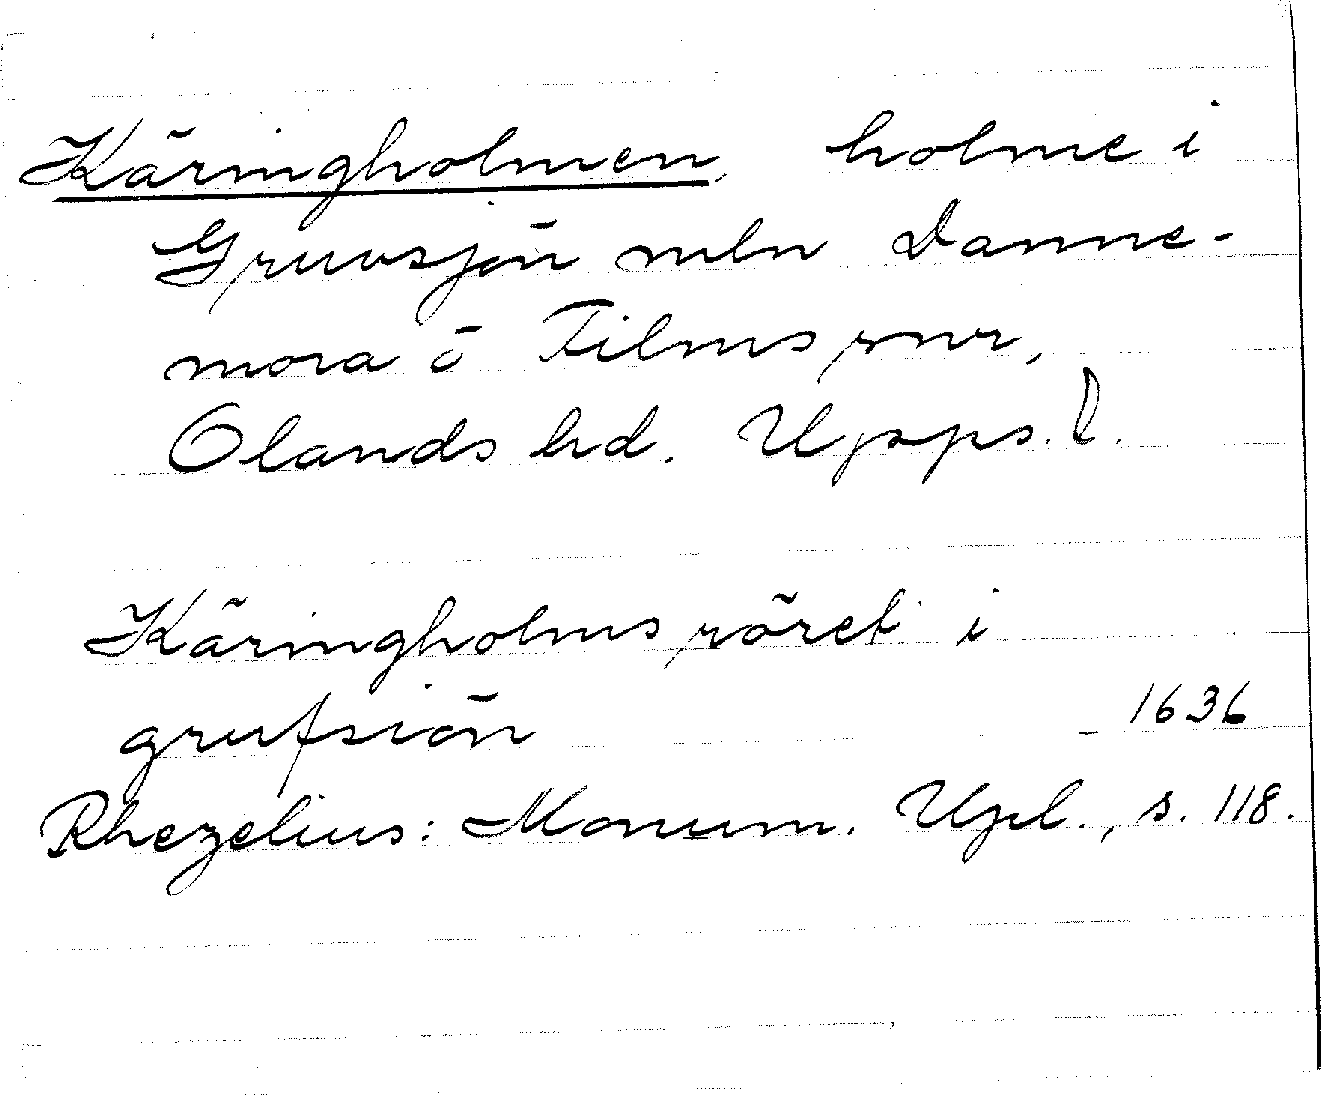 Käringholmen, holme i
Gruvsjön mln Danne-
mora o Films snr,
Olands hd. Upps. l.
Käringholms röret i
grufsiön 1636
Rhezelius: Monum. Upl., s. 118.